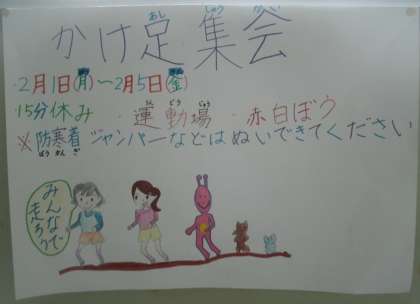 かけ足集会
・2月1日(月)〜2月5日(金)
・15分休み ・運動場 ・赤白ぼう
※防寒着ジャンパーなどはぬいできてください
みんなで走ろう